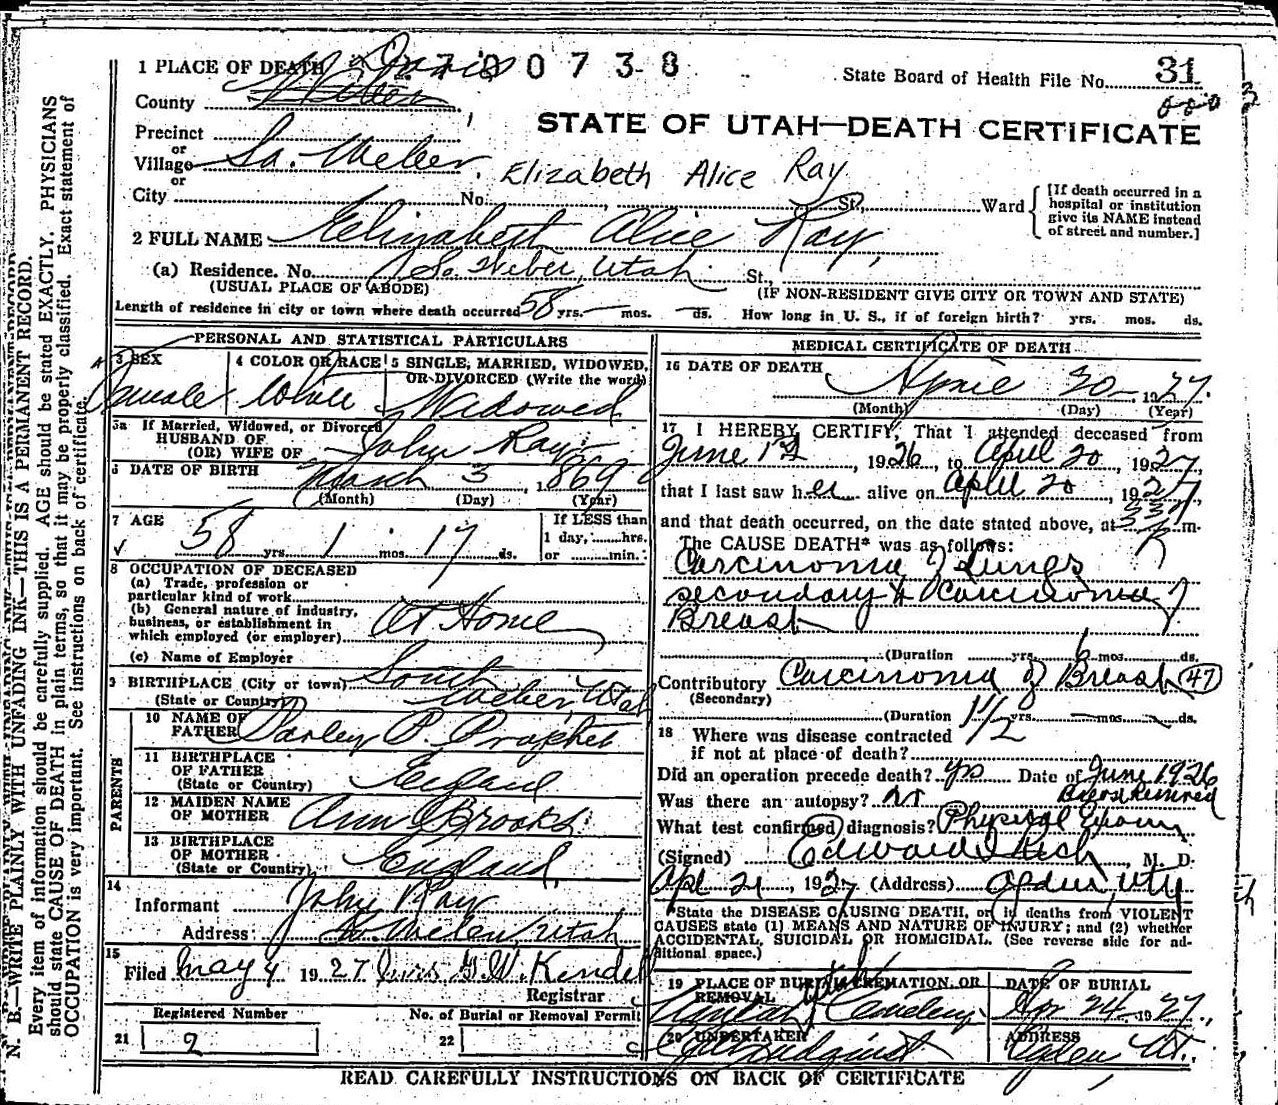 1 PLACE OF DEATH Davis 2700738 State Board of Health File No. 31
County Weber
STATE OF UTAH—DEATH CERTIFICATE
Precinct
or
Village So. Weber. Elizabeth Alice Ray
or
City No. St. Ward [If death occurred in a hospital or institution give its NAME instead of street and number.]
2 FULL NAME Elizabeth Alice Ray,
(a) Residence. No. So. Weber, Utah St.,
(USUAL PLACE OF ABODE) (IF NON-RESIDENT GIVE CITY OR TOWN AND STATE)
Length of residence in city or town where death occurred 58 yrs. — mos. — ds. How long in U. S., if of foreign birth? yrs. mos. ds.
PERSONAL AND STATISTICAL PARTICULARS
3 SEX 4 COLOR OR RACE 5 SINGLE, MARRIED, WIDOWED, OR DIVORCED (Write the word)
Female White Widowed
5a If Married, Widowed, or Divorced
HUSBAND OF
(OR) WIFE OF John Ray
6 DATE OF BIRTH March 3, 1869
(Month) (Day) (Year)
7 AGE 58 yrs. 1 mos. 17 ds. If LESS than 1 day, ......hrs. or ......min.
8 OCCUPATION OF DECEASED
(a) Trade, profession or
particular kind of work
(b) General nature of industry,
business, or establishment in
which employed (or employer) At Home
(c) Name of Employer
9 BIRTHPLACE (City or town) South
(State or Country) Weber, Utah
PARENTS
10 NAME OF
FATHER P. Prophet
11 BIRTHPLACE
OF FATHER
(State or Country) England
12 MAIDEN NAME
OF MOTHER Ann Brooks
13 BIRTHPLACE
OF MOTHER
(State or Country) England
14
Informant John Ray
Address So. Weber, Utah
15
Filed May 4 1927 G. W. Kendell
Registrar
Registered Number No. of Burial or Removal Permit
21 2 22
MEDICAL CERTIFICATE OF DEATH
16 DATE OF DEATH
April 20 1927.
(Month) (Day) (Year)
17 I HEREBY CERTIFY, That I attended deceased from
June 1st, 1926, to April 20, 1927,
that I last saw her alive on April 20, 1927,
and that death occurred, on the date stated above, at 3 30 P m.
The CAUSE DEATH* was as follows:
Carcinoma of Lungs
secondary to Carcinoma of
Breast
(Duration yrs. 6 mos. ds.
Contributory Carcinoma of Breast 47
(Secondary)
(Duration 1 1/2 yrs. — mos. ds.
18 Where was disease contracted
if not at place of death?
Did an operation precede death? Yes Date of June 1926
Was there an autopsy? No Breast Removed
What test confirmed diagnosis? Physical Exam
(Signed) Edward I Rich, M. D.
Apl 21, 1927 (Address) Ogden, Utah
*State the DISEASE CAUSING DEATH, or in deaths from VIOLENT
CAUSES state (1) MEANS AND NATURE OF INJURY; and (2) whether
ACCIDENTAL, SUICIDAL OR HOMICIDAL. (See reverse side for additional space.)
19 PLACE OF BURIAL CREMATION, OR
REMOVAL DATE OF BURIAL
Cemetery. Apr 24 1927.
20 UNDERTAKER ADDRESS
Lindquist Ogden Ut.
READ CAREFULLY INSTRUCTIONS ON BACK OF CERTIFICATE
N. B.—WRITE PLAINLY WITH UNFADING INK—THIS IS A PERMANENT RECORD.
Every item of information should be carefully supplied. AGE should be stated EXACTLY. PHYSICIANS
should state CAUSE OF DEATH in plain terms, so that it may be properly classified. Exact statement of
OCCUPATION is very important. See instructions on back of certificate.